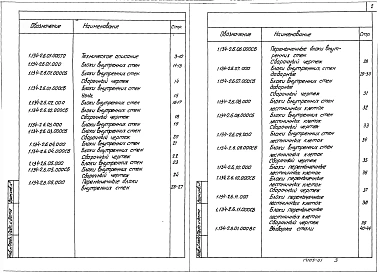 Обозначение Наименование Стр.
1.134-2.6.01.000ТО Техническое описание 3-10
1.134-2.6.01.000 Блоки внутренних стен 11-13
1.134-2.6.01.000СБ Блоки внутренних стен
Сборочный чертеж 14
Блоки внутренних стен
1.134-2.6.02.000 Блоки внутренних стен
1.134-2.6.02.000СБ Блоки внутренних стен
Сборочный чертеж 18
1.134-2.6.03.000 Блоки внутренних стен
1.134-2.6.03.000СБ Блоки внутренних стен
Сборочный чертеж 20
1.134-2.6.04.000 Блоки внутренних стен 21
1.134-2.6.04.000СБ Блоки внутренних стен
Сборочный чертеж 22
1.134-2.6.05.000 Блоки внутренних стен 23
1.134-2.6.05.000СБ Блоки внутренних стен
Сборочный чертеж
1.134-2.6.06.000 Перемычечные блоки
внутренних стен
Обозначение Наименование Стр.
1.134-2.6.06.000СБ Перемычечные блоки внут-
ренних стен
Сборочный чертеж
1.134-2.6.07.000 Блоки внутренних стен
доборные
1.134-2.6.07.000СБ Блоки внутренних стен
доборные
Сборочный чертеж 31
1.134-2.6.08.000 Блоки внутренних стен
лестничных клеток 32
1.134-2.6.08.000СБ Блоки внутренних стен
лестничных клеток
Сборочный чертеж 33
1.134-2.6.09.000 Блоки внутренних стен
лестничных клеток 34
1.134-2.6.09.000СБ Блоки внутренних стен
лестничных клеток
Сборочный чертеж 35
1.134-2.6.10.000 Блоки перемычечные
лестничных клеток 36
1.134-2.6.10.000СБ Блоки перемычечные
лестничных клеток
Сборочный чертеж 37
1.134-2.6.11.000 Блоки перемычечные
лестничных клеток 38
1.134-2.6.11.000СБ Блоки перемычечные
лестничных клеток
Сборочный чертеж 39
1.134-2.6.01.000ВС Выборка стали
3